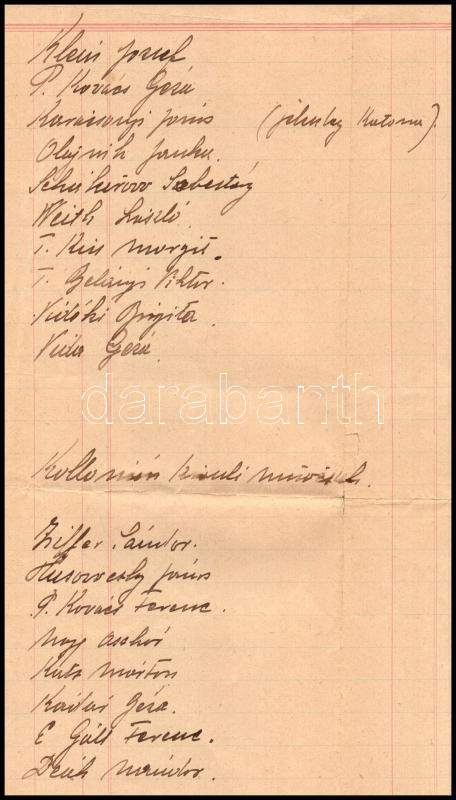 Klein József
P. Kovács Géza
Karácsonyi János (jelenleg Katona).
Olejnik Janka.
Sebestény
Weith László.
T. Kiss Margit.
T. Belányi Viktor.
Vidéki Brigitta
Vida Géza
darabanth
Kollonián kivüli müvészek.
Ziffer Sándor.
János
P. Kovács Ferenc.
Nagy Oszkár
Katz Márton
Kádár Géza.
E Gáll Ferenc.
Deák Nándor.